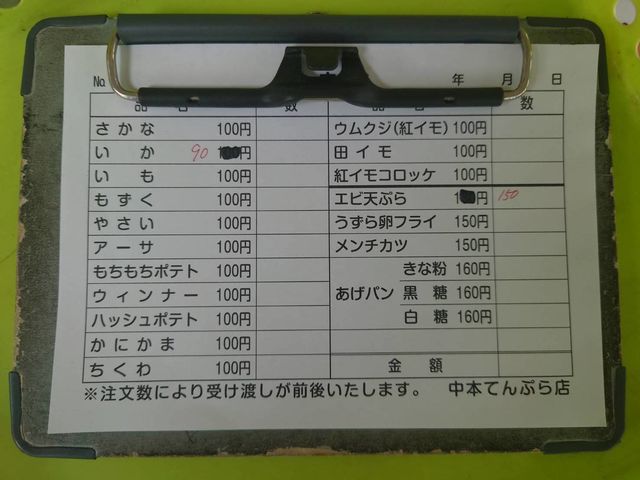 No. 年 月 日
品 名 数 品 名 数
さかな 100円
いか 90 円
いも 100円
もずく 100円
やさい 100円
アーサ 100円
もちもちポテト 100円
ウィンナー 100円
ハッシュポテト 100円
かにかま 100円
ちくわ 100円
ウムクジ(紅イモ) 100円
田イモ 100円
紅イモコロッケ 100円
エビ天ぷら 1 円 150
うずら卵フライ 150円
メンチカツ 150円
あげパン
きな粉 160円
黒糖 160円
白糖 160円
金額
※注文数により受け渡しが前後いたします。 中本てんぷら店